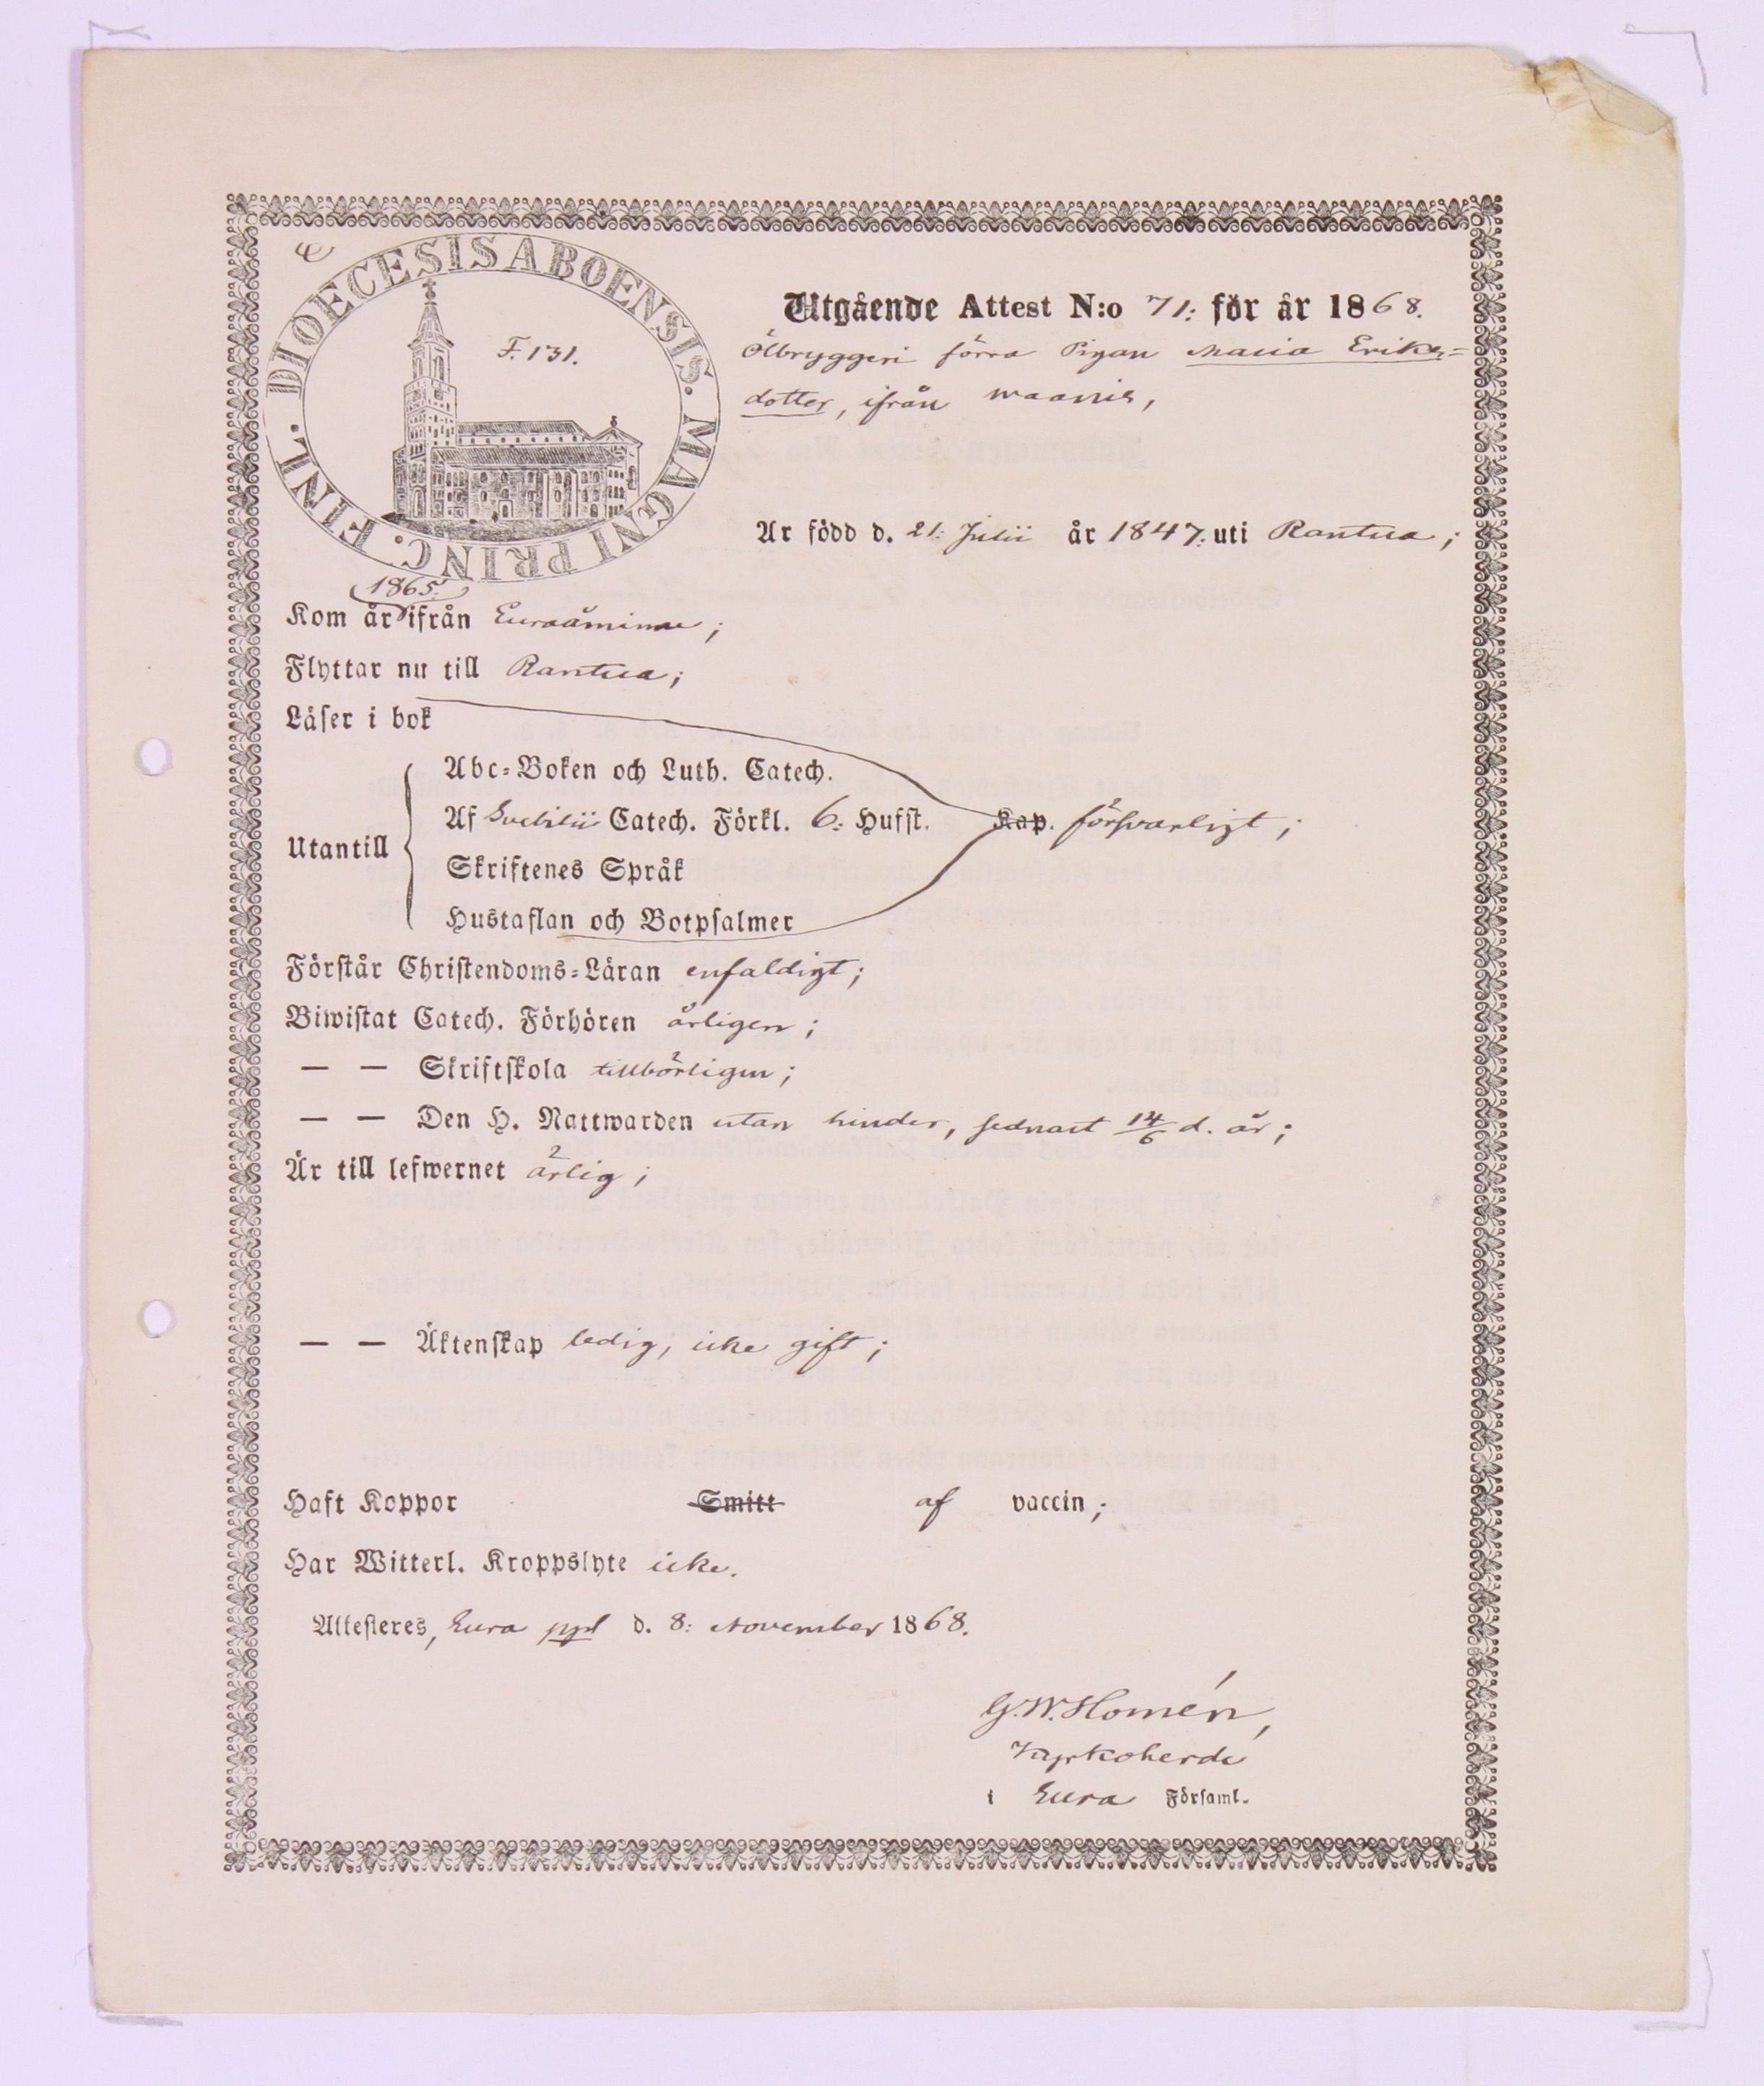 DIOECESIS ABOENSIS. MAGNI PRINC. FINL.
F. 131.
Utgående Attest N:o 71: för år 1868.
Ölbryggeri förra Pigan Maria Eriks=
dotter, ifrån
Är född d. 21: Julii år 1847: uti Rantua;
1865.
Kom år ifrån Euraåminne;
Flyttar nu till Rantua;
Läser i bok
Abc=Boken och Luth. Catech.
Af Svebilii Catech. Förkl. 6: Hufst. Kap. försvarligt;
Utantill
Skriftenes Språk
Hustaflan och Botpsalmer
Förstår Christendoms=Läran enfaldigt;
Biwistat Catech. Förhören årligen;
— — Skriftskola tillbörligen;
— — Den H. Nattwarden utan hinder, sednast 14/6 d. år;
Är till lefwernet ärlig;
— — Äktenskap ledig, icke gift;
Haft Koppor Smitt af vaccin;
Har Witterl. Kroppslyte icke.
Attesteres, Eura ppl d. 8: November 1868.
G. W. Homén,
Kyrkoherde
i Eura Församl.